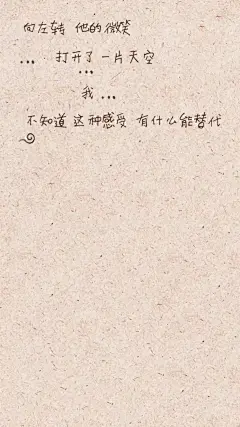 向左转 他的微笑
... 打开了一片天空
...
我 ...
不知道 这种感受 有什么能替代